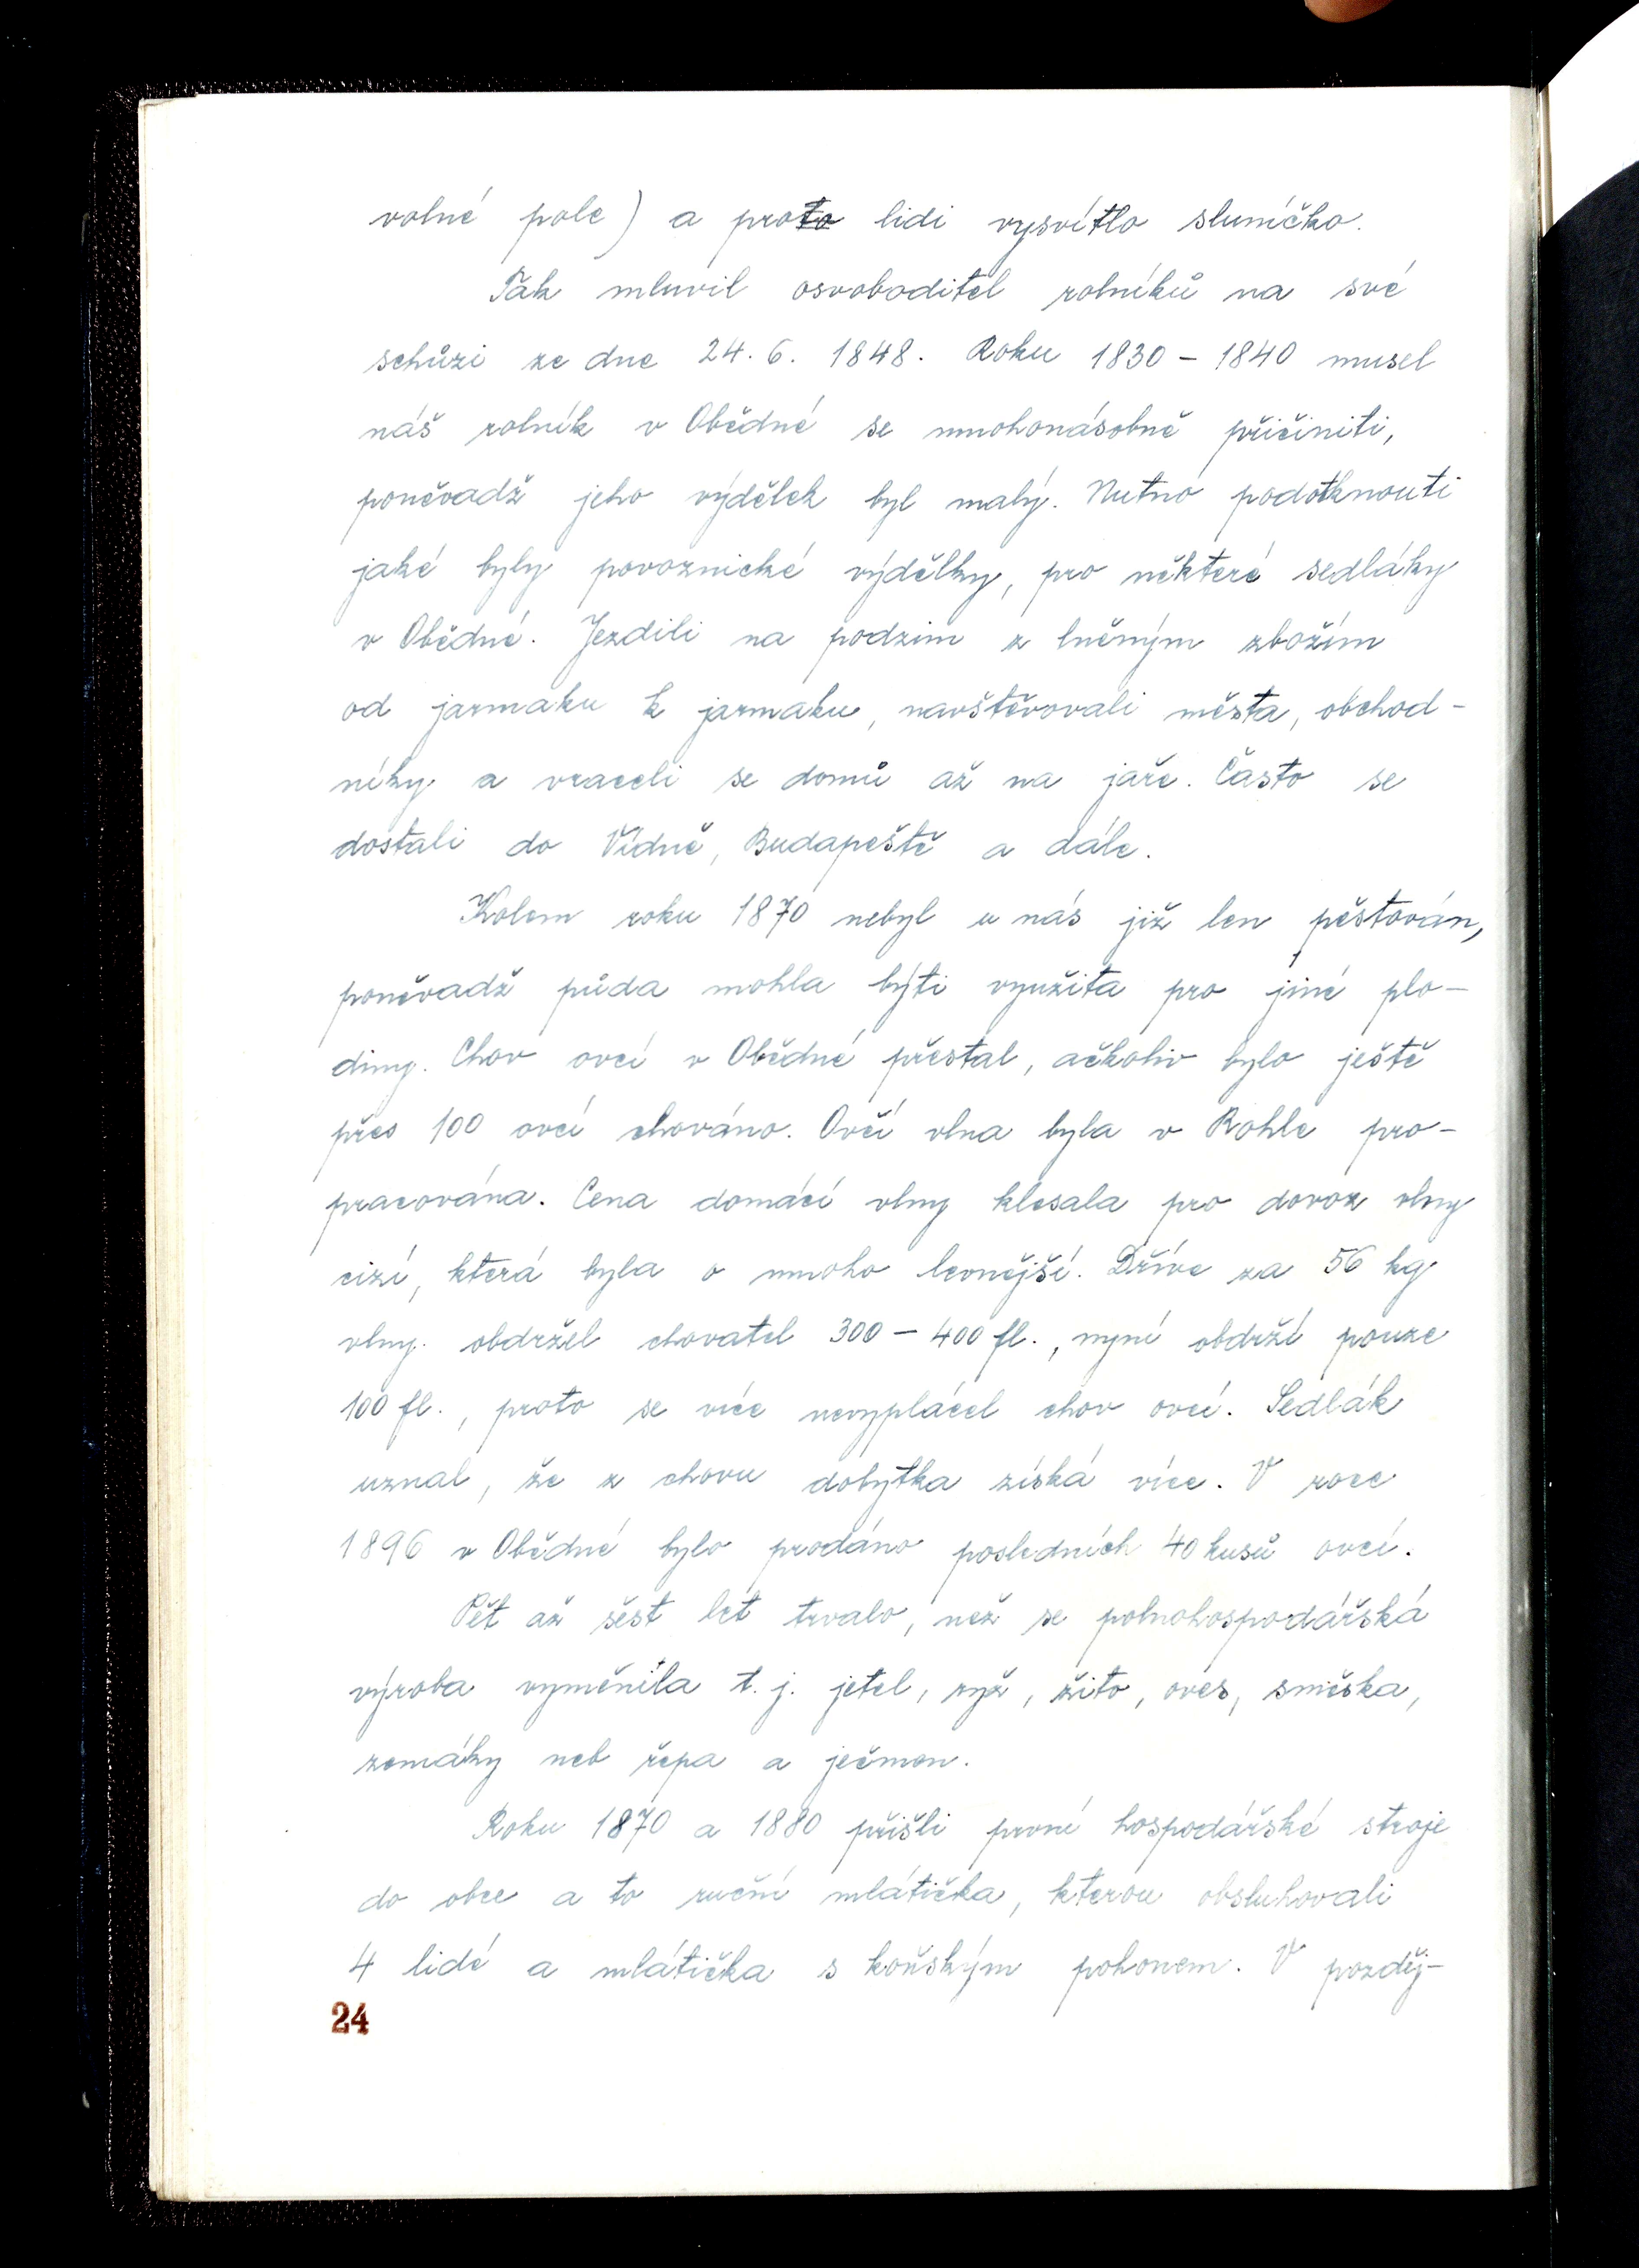 volné pole) a proto lidi vysvítlo sluníčko.
Tak mluvil osvoboditel rolníků na své
schůzi ze dne 24. 6. 1848. Roku 1830 – 1840 musel
náš rolník v Obědné se mnohonásobně přičiniti,
poněvadž jeho výdělek byl malý. Nutno podotknouti
jaké byly povoznické výdělky, pro některé sedláky
v Obědné. Jezdili na podzim z lněným zbožím
od jarmaku k jarmaku, navštěvovali města, obchod-
níky a vraceli se domů až na jaře. Často se
dostali do Vídně, Budapeště a dále.
Kolem roku 1870 nebyl u nás již len pěstován,
poněvadž půda mohla býti využita pro jiné plo-
diny. Chov ovcí v Obědné přestal, ačkoliv bylo ještě
přes 100 ovcí chováno. Ovčí vlna byla v Rohle pro-
pracována. Cena domácí vlny klesala pro dovoz vlny
cizí, která byla o mnoho levnější. Dříve za 56 kg
vlny obdržel chovatel 300 – 400 fl., nyní obdrží pouze
100 fl., proto se více nevyplácel chov ovcí. Sedlák
uznal, že z chovu dobytka získá více. V roce
1896 v Obědné bylo prodáno posledních 40 kusů ovcí.
Pět až šest let trvalo, než se polnohospodářská
výroba vyměnila t. j. jetel, ryž, žito, oves, směska,
zemáky neb řepa a ječmen.
Roku 1870 a 1880 přišli první hospodářské stroje
do obce a to ruční mlátička, kterou obsluhovali
4 lidé a mlátička s koňským pohonem. V pozděj-
24